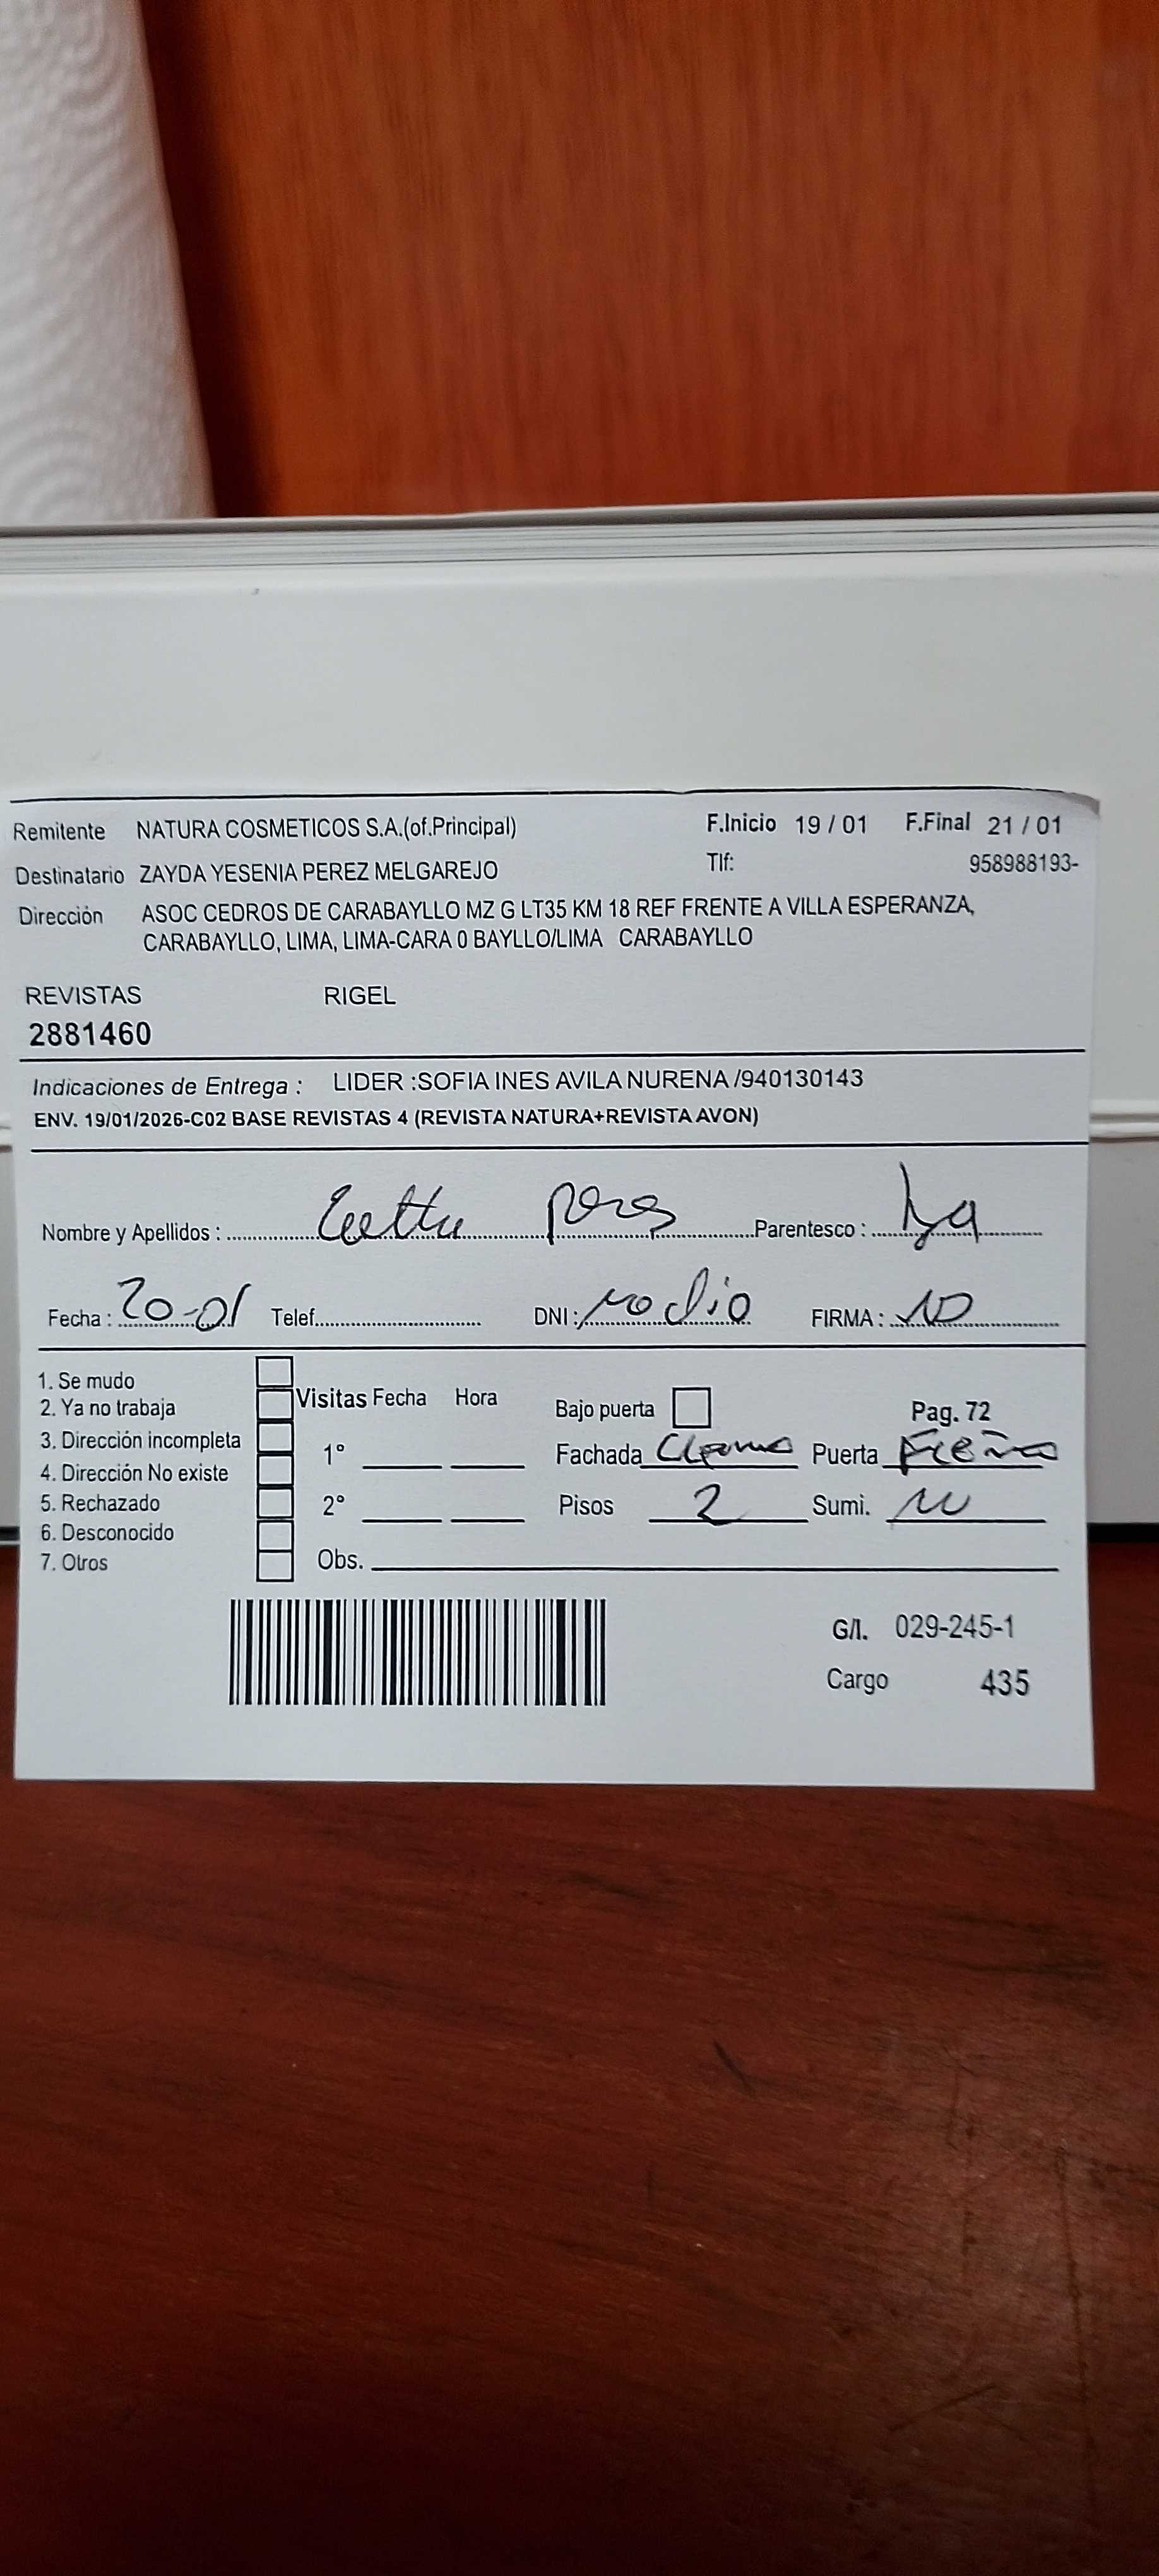 Remitente NATURA COSMETICOS S.A.(of.Principal) F.Inicio 19 / 01 F.Final 21 / 01
Destinatario ZAYDA YESENIA PEREZ MELGAREJO Tlf: 958988193-
Dirección ASOC CEDROS DE CARABAYLLO MZ G LT35 KM 18 REF FRENTE A VILLA ESPERANZA,
CARABAYLLO, LIMA, LIMA-CARA 0 BAYLLO/LIMA CARABAYLLO
REVISTAS RIGEL
2881460
Indicaciones de Entrega : LIDER :SOFIA INES AVILA NURENA /940130143
ENV. 19/01/2026-C02 BASE REVISTAS 4 (REVISTA NATURA+REVISTA AVON)
Nombre y Apellidos : Peres Parentesco :
Fecha : 20-01 Telef. DNI : no dio FIRMA :
1. Se mudo
2. Ya no trabaja
3. Dirección incompleta
4. Dirección No existe
5. Rechazado
6. Desconocido
7. Otros
Visitas Fecha Hora
1°
2°
Obs.
Bajo puerta Pag. 72
Fachada Crema Puerta
Pisos 2 Sumi.
G/I. 029-245-1
Cargo 435